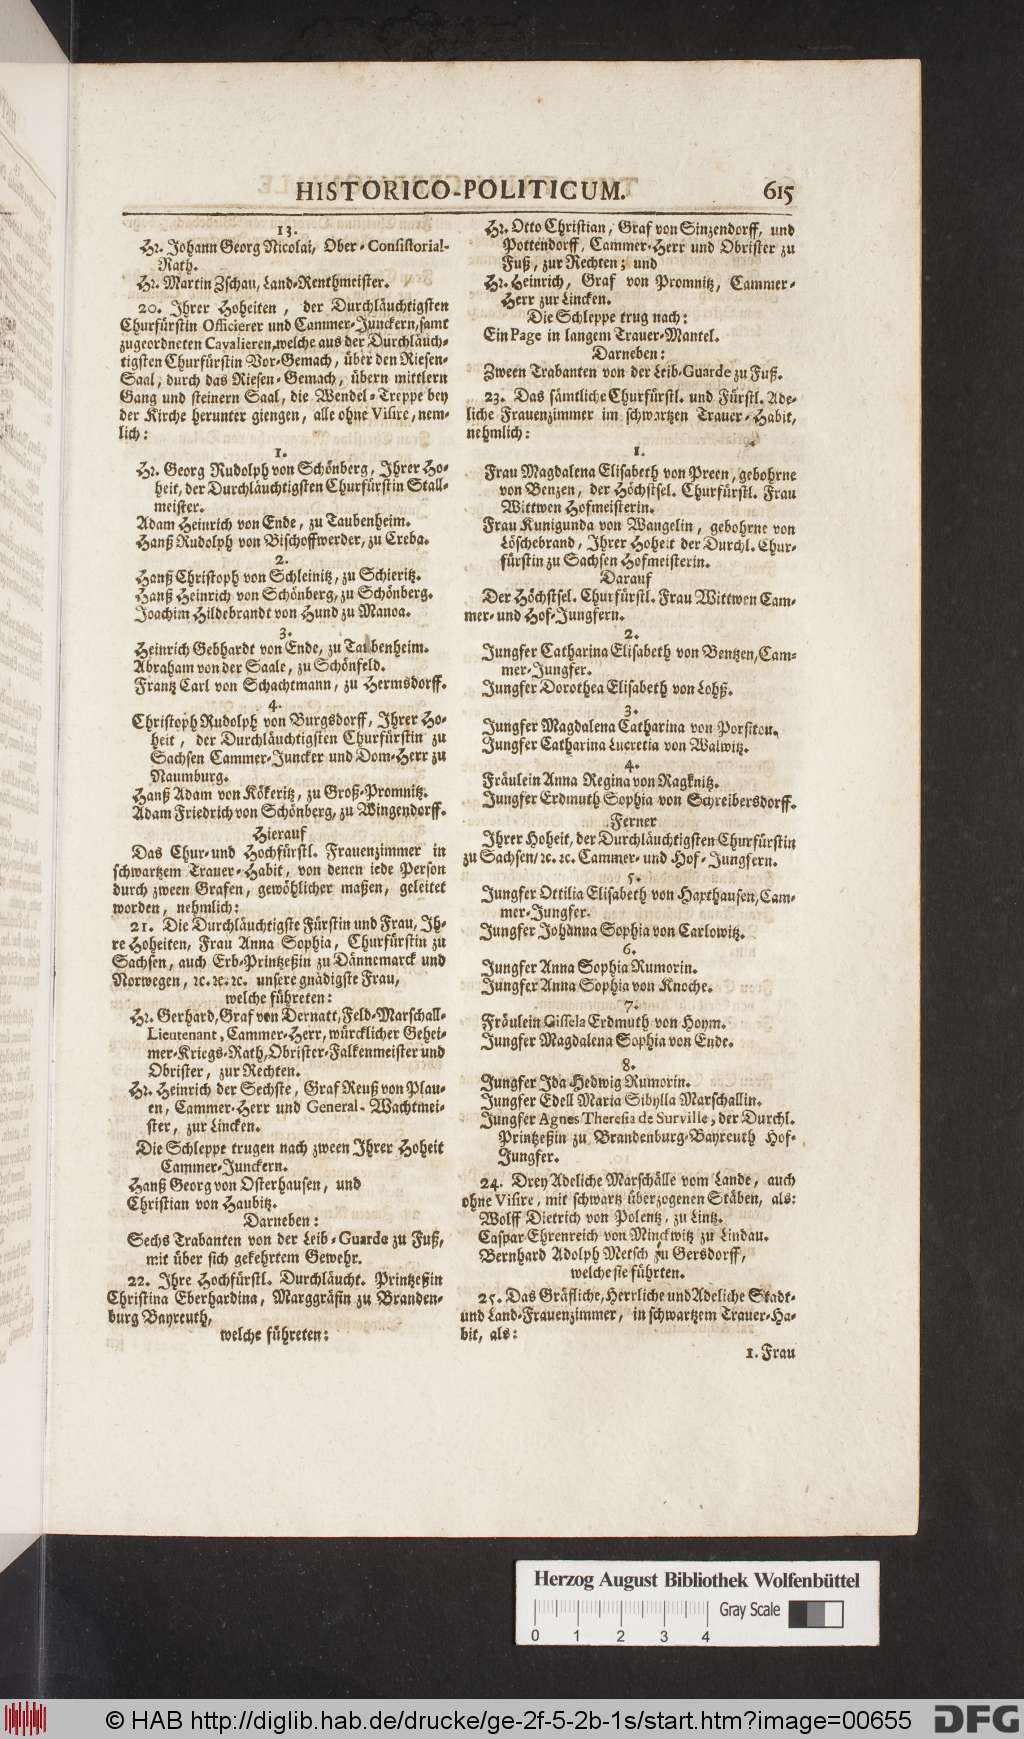 HISTORICO-POLITICUM. 615
13.
Hr. Johann Georg Nicolai, Ober-Consistorial-
Rath.
Hr. Martin Zschau, Land-Renthmeister.
20. Ihrer Hoheiten, der Durchläuchtigsten
Churfürstin Officierer und Cammer-Junckern, samt
zugeordneten Cavalieren, welche aus der Durchläuch-
tigsten Churfürstin Vor-Gemach, über den Riesen-
Saal, durch das Riesen-Gemach, übern mittlern
Gang und steinern Saal, die Wendel-Treppe bey
der Kirche herunter giengen, alle ohne Visire, nem-
lich:
1.
Hr. Georg Rudolph von Schönberg, Ihrer Ho-
heit, der Durchläuchtigsten Churfürstin Stall-
meister.
Adam Heinrich von Ende, zu Taubenheim.
Hanß Rudolph von Bischoffwerder, zu Creba.
2.
Hanß Christoph von Schleinitz, zu Schieritz.
Hanß Heinrich von Schönberg, zu Schönberg.
Joachim Hildebrandt von Hund zu Manoa.
3.
Heinrich Gebhardt von Ende, zu Taubenheim.
Abraham von der Saale, zu Schönfeld.
Frantz Carl von Schachtmann, zu Hermsdorff.
4.
Christoph Rudolph von Burgsdorff, Ihrer Ho-
heit, der Durchläuchtigsten Churfürstin zu
Sachsen Cammer-Juncker und Dom-Herr zu
Naumburg.
Hanß Adam von Kökeritz, zu Groß-Promnitz.
Adam Friedrich von Schönberg, zu Wingendorff.
Hierauf
Das Chur- und Hochfürstl. Frauenzimmer in
schwartzem Trauer-Habit, von denen iede Person
durch zween Grafen, gewöhlicher maßen, geleitet
worden, nehmlich:
21. Die Durchläuchtigste Fürstin und Frau, Ih-
re Hoheiten, Frau Anna Sophia, Churfürstin zu
Sachsen, auch Erb-Printzeßin zu Dännemarck und
Norwegen, ꝛc. ꝛc. ꝛc. unsere gnädigste Frau,
welche führeten:
Hr. Gerhard, Graf von Dernatt, Feld-Marschall-
Lieutenant, Cammer-Herr, würcklicher Gehei-
mer-Kriegs-Rath, Obrister-Falkenmeister und
Obrister, zur Rechten.
Hr. Heinrich der Sechste, Graf Reuß von Plau-
en, Cammer-Herr und General-Wachtmei-
ster, zur Lincken.
Die Schleppe trugen nach zween Ihrer Hoheit
Cammer-Junckern.
Hanß Georg von Osterhausen, und
Christian von Haubitz.
Darneben:
Sechs Trabanten von der Leib-Guarde zu Fuß,
mit über sich gekehrtem Gewehr.
22. Ihre Hochfürstl. Durchläucht. Printzeßin
Christina Eberhardina, Marggräfin zu Branden-
burg Bayreuth,
welche führeten:
Hr. Otto Christian, Graf von Sinzendorff, und
Pottendorff, Cammer-Herr und Obrister zu
Fuß, zur Rechten; und
Hr. Heinrich, Graf von Promnitz, Cammer-
Herr zur Lincken.
Die Schleppe trug nach:
Ein Page in langem Trauer-Mantel.
Darneben:
Zween Trabanten von der Leib-Guarde zu Fuß.
23. Das sämtliche Churfürstl. und Fürstl. Ade-
liche Frauenzimmer im schwartzen Trauer-Habit,
nehmlich:
1.
Frau Magdalena Elisabeth von Preen, gebohrne
von Benzen, der Höchstsel. Churfürstl. Frau
Wittwen Hofmeisterin.
Frau Kunigunda von Wangelin, gebohrne von
Löschebrand, Ihrer Hoheit der Durchl. Chur-
fürstin zu Sachsen Hofmeisterin.
Darauf
Der Höchstsel. Churfürstl. Frau Wittwen Cam-
mer- und Hof-Jungfern.
2.
Jungfer Catharina Elisabeth von Bentzen, Cam-
mer-Jungfer.
Jungfer Dorothea Elisabeth von Lohß.
3.
Jungfer Magdalena Catharina von
Jungfer Catharina Lucretia von Walwitz.
4.
Fräulein Anna Regina von Ragknitz.
Jungfer Erdmuth Sophia von Schreibersdorff.
Ferner
Ihrer Hoheit, der Durchläuchtigsten Churfürstin
zu Sachsen/ ꝛc. ꝛc. Cammer- und Hof-Jungfern.
5.
Jungfer Ottilia Elisabeth von Haxthausen, Cam-
mer-Jungfer.
Jungfer Johanna Sophia von Carlowitz.
6.
Jungfer Anna Sophia Rumorin.
Jungfer Anna Sophia von Knoche.
7.
Fräulein Gissela Erdmuth von Hoym.
Jungfer Magdalena Sophia von Ende.
8.
Jungfer Ida Hedwig Rumorin.
Jungfer Edell Maria Sibylla Marschallin.
Jungfer Agnes Theresia de Surville, der Durchl.
Printzeßin zu Brandenburg-Bayreuth Hof-
Jungfer.
24. Drey Adeliche Marschälle vom Lande, auch
ohne Visire, mit schwartz überzogenen Stäben, als:
Wolff Dietrich von Polentz, zu Lintz.
Caspar Ehrenreich von Minckwitz zu Lindau.
Bernhard Adolph Metsch zu Gersdorff,
welche sie führten.
25. Das Gräfliche, Herrliche und Adeliche Stadt-
und Land-Frauenzimmer, in schwartzem Trauer-Ha-
bit, als:
1. Frau
Herzog August Bibliothek Wolfenbüttel
Gray Scale
0 1 2 3 4
© HAB http://diglib.hab.de/drucke/ge-2f-5-2b-1s/start.htm?image=00655 DFG